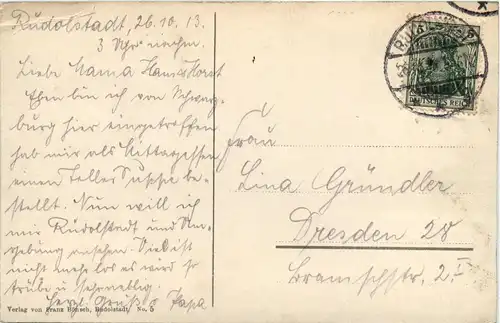 Rudolstadt, 26.10.13.
3 Uhr nachm.
Liebe Mama & Hans Horst
Eben bin ich von Schwarz-
burg hier eingetroffen
hab mir als Mittagessen
einen Teller Suppe be-
stellt. Nun will ich
mir Rudolstadt und Um-
gebung ansehen. Viel ist
nicht mehr los es wird so
trübe u. sehr neblig.
Herzl. Gruß Papa
Verlag von Franz Hönsch, Rudolstadt. No. 5
RUDOLSTADT
DEUTSCHES REICH
Frau
Lina Gründler
Dresden 28